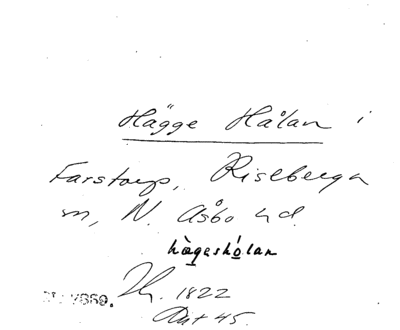 Hägge Hålan i
Farstorp, Riseberga
sn, N. Åsbo hd.
hägeshólan
1822
Ant 45.